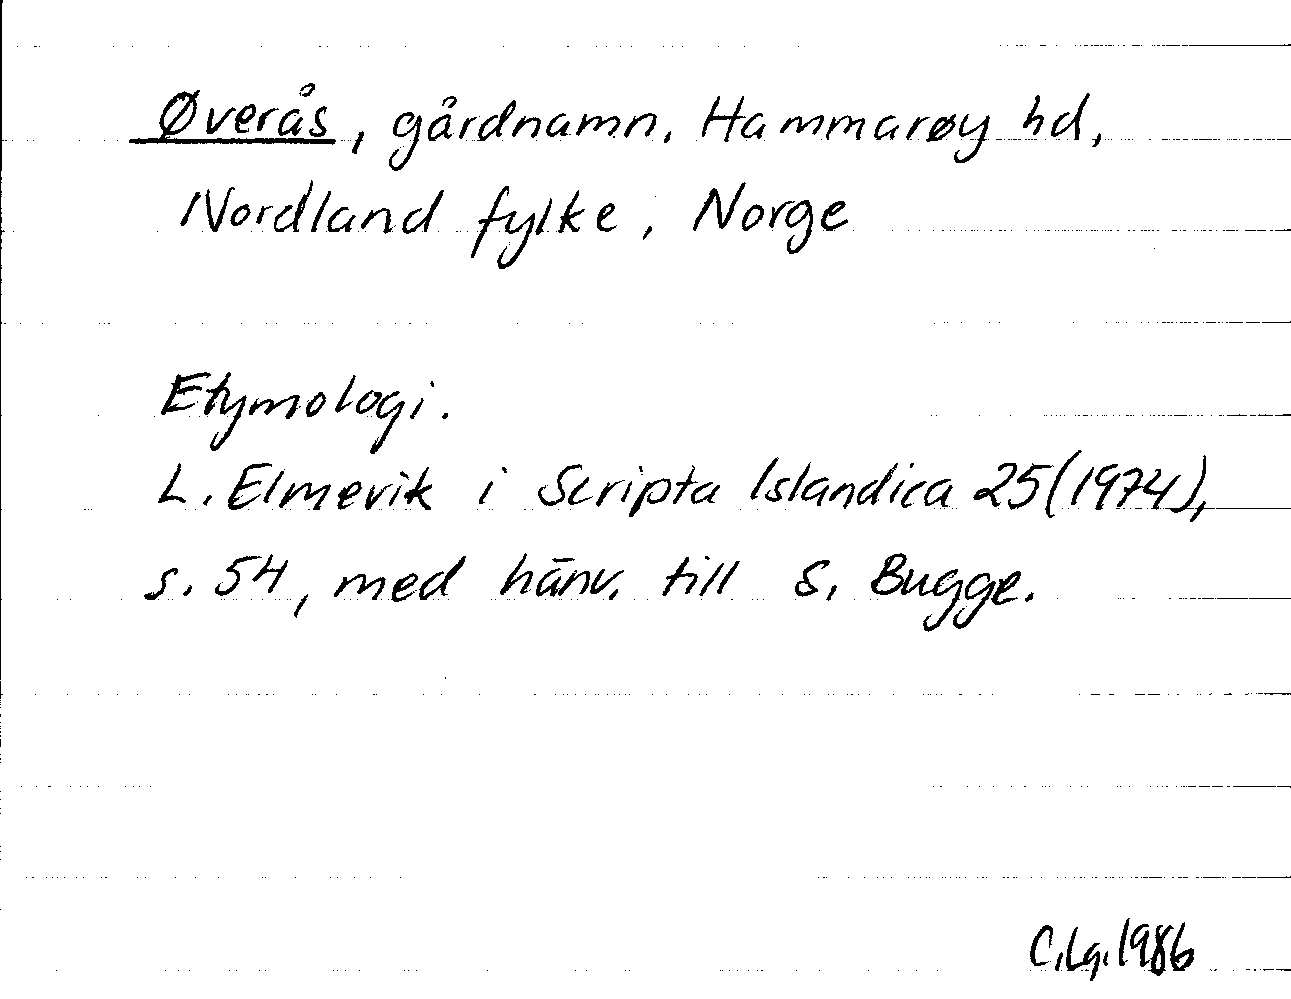 Øverås, gårdnamn, Hammarøy hd,
Nordland fylke, Norge
Etymologi.
L. Elmevik i Scripta Islandica 25(1974),
s. 54, med hänv. till S. Bugge.
C.Lg.1986